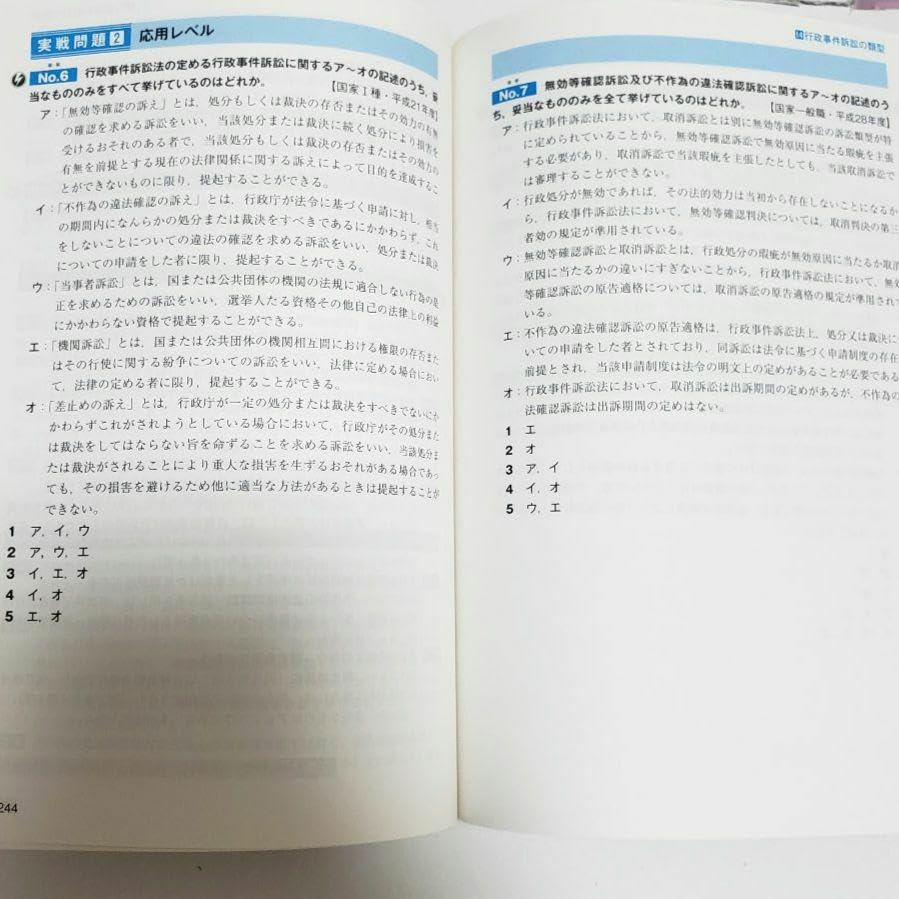 実戦問題2 応用レベル
No.6 行政事件訴訟法の定める行政事件訴訟に関するア～オの記述のうち、妥
当なもののみをすべて挙げているのはどれか。
【国家Ⅰ種・平成21年度】
ア：「無効等確認の訴え」とは、処分もしくは裁決の存否またはその効力の有無
の確認を求める訴訟をいい、当該処分または裁決に続く処分により損害を
受けるおそれのある者で、当該処分もしくは裁決の存否またはその効力の
有無を前提とする現在の法律関係に関する訴えによって目的を達成するこ
とができないものに限り、提起することができる。
イ：「不作為の違法確認の訴え」とは、行政庁が法令に基づく申請に対し、相当
の期間内になんらかの処分または裁決をすべきであるにかかわらず、これ
をしないことについての違法の確認を求める訴訟をいい、処分または裁決
についての申請をした者に限り、提起することができる。
ウ：「当事者訴訟」とは、国または公共団体の機関の法規に適合しない行為の是
正を求めるための訴訟をいい、選挙人たる資格その他自己の法律上の利益
にかかわらない資格で提起することができる。
エ：「機関訴訟」とは、国または公共団体の機関相互間における権限の存否また
はその行使に関する紛争についての訴訟をいい、法律に定める場合におい
て、法律の定める者に限り、提起することができる。
オ：「差止めの訴え」とは、行政庁が一定の処分または裁決をすべきでないにか
かわらずこれがされようとしている場合において、行政庁がその処分また
は裁決をしてはならない旨を命ずることを求める訴訟をいい、当該処分ま
たは裁決がされることにより重大な損害を生ずるおそれがある場合であっ
ても、その損害を避けるため他に適当な方法があるときは提起することが
できない。
1 ア，イ，ウ
2 ア，ウ，エ
3 イ，エ，オ
4 イ，オ
5 エ，オ
244
14行政事件訴訟の類型
No.7 無効等確認訴訟及び不作為の違法確認訴訟に関するア～オの記述のう
ち、妥当なもののみを全て挙げているのはどれか。
【国家一般職・平成28年度】
ア：行政事件訴訟法において、取消訴訟とは別に無効等確認訴訟の訴訟類型が特
に定められていることから、無効等確認訴訟で無効原因に当たる瑕疵を主張
する必要があり、取消訴訟で当該瑕疵を主張したとしても、当該取消訴訟で
は審理することができない。
イ：行政処分が無効であれば、その法的効力は当初から存在しないことになるか
ら、行政事件訴訟法において、無効等確認判決については、取消判決の第三
者効の規定が準用されている。
ウ：無効等確認訴訟と取消訴訟とは、行政処分の瑕疵が無効原因に当たるか取消
原因に当たるかの違いにすぎないことから、行政事件訴訟法において、無効
等確認訴訟の原告適格については、取消訴訟の原告適格の規定が準用されて
いる。
エ：不作為の違法確認訴訟の原告適格は、行政事件訴訟法上、処分又は裁決につ
いての申請をした者とされており、同訴訟は法令に基づく申請制度の存在
前提とされ、当該申請制度は法令の明文上の定めがあることが必要である
オ：行政事件訴訟法において、取消訴訟は出訴期間の定めがあるが、不作為の
法確認訴訟は出訴期間の定めはない。
1 エ
2 オ
3 ア，イ
4 イ，オ
5 ウ，エ